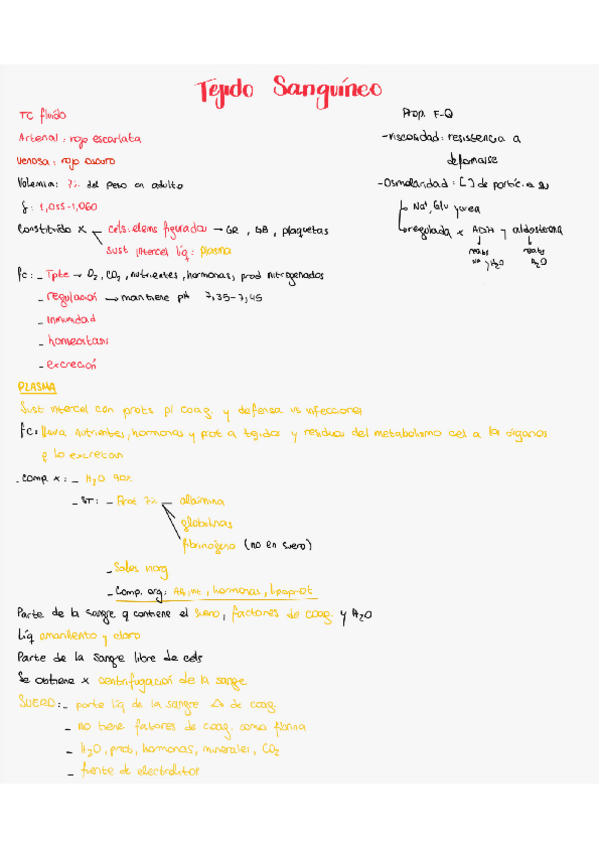 Tejido Sanguíneo
TC fluido
Arterial: rojo escarlata
Venosa: rojo oscuro
Volemia: 7% del peso en adulto
δ: 1,055-1,060
Constituido x cels: elems figurados → GR, GB, plaquetas
sust intercel líq: plasma
Prop. F-Q
-viscosidad: resistencia a
deformarse
-Osmolaridad: [ ] de partíc. en
Na⁺, Glu y urea
regulada x ADH y aldosterona
fc: - Tpte → O2, CO2, nutrientes, hormonas, prod nitrogenados
- regulación → mantiene pH 7,35-7,45
- inmunidad
- homeostasis
- excreción
PLASMA
Sust intercel con prots p/ coag. y defensa vs infecciones
fc: lleva nutrientes, hormonas y prot a tejidos y residuos del metabolismo cel a los órganos
q lo excretan
- Comp x: - H2O 90%
- ST: - Prot 7% albúmina
globulinas
fibrinógeno (no en suero)
- Sales inorg
- Comp. org: AA, int, hormonas, lipoprot
Parte de la sangre q contiene el suero, factores de coag. y H2O
Líq amarillento y claro
Parte de la sangre libre de cels
Se obtiene x centrifugación de la sangre
SUERO: - parte líq de la sangre de coag.
- no tiene fatores de coag. como fibrina
- H2O, prots, hormonas, minerales, CO2
- fuente de electrolitos